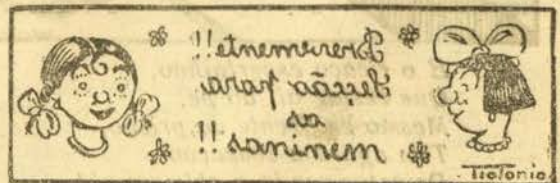 Brevemente!!
Secção para
as
meninas!!
TioTonio